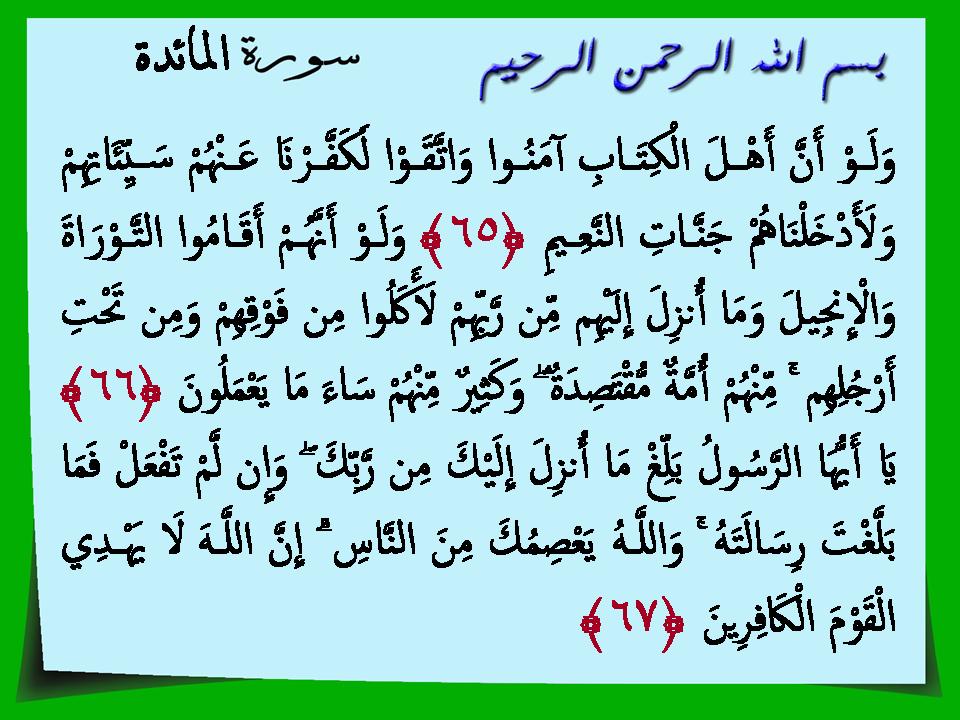 بسم الله الرحمن الرحيم سورة المائدة
وَلَوْ أَنَّ أَهْلَ الْكِتَابِ آمَنُوا وَاتَّقَوْا لَكَفَّرْنَا عَنْهُمْ سَيِّئَاتِهِمْ
وَلَأَدْخَلْنَاهُمْ جَنَّاتِ النَّعِيمِ ﴿٦٥﴾ وَلَوْ أَنَّهُمْ أَقَامُوا التَّوْرَاةَ
وَالْإِنجِيلَ وَمَا أُنزِلَ إِلَيْهِم مِّن رَّبِّهِمْ لَأَكَلُوا مِن فَوْقِهِمْ وَمِن تَحْتِ
أَرْجُلِهِم ۚ مِّنْهُمْ أُمَّةٌ مُّقْتَصِدَةٌ ۖ وَكَثِيرٌ مِّنْهُمْ سَاءَ مَا يَعْمَلُونَ ﴿٦٦﴾
يَا أَيُّهَا الرَّسُولُ بَلِّغْ مَا أُنزِلَ إِلَيْكَ مِن رَّبِّكَ ۖ وَإِن لَّمْ تَفْعَلْ فَمَا
بَلَّغْتَ رِسَالَتَهُ ۚ وَاللَّهُ يَعْصِمُكَ مِنَ النَّاسِ ۗ إِنَّ اللَّهَ لَا يَهْدِي
الْقَوْمَ الْكَافِرِينَ ﴿٦٧﴾